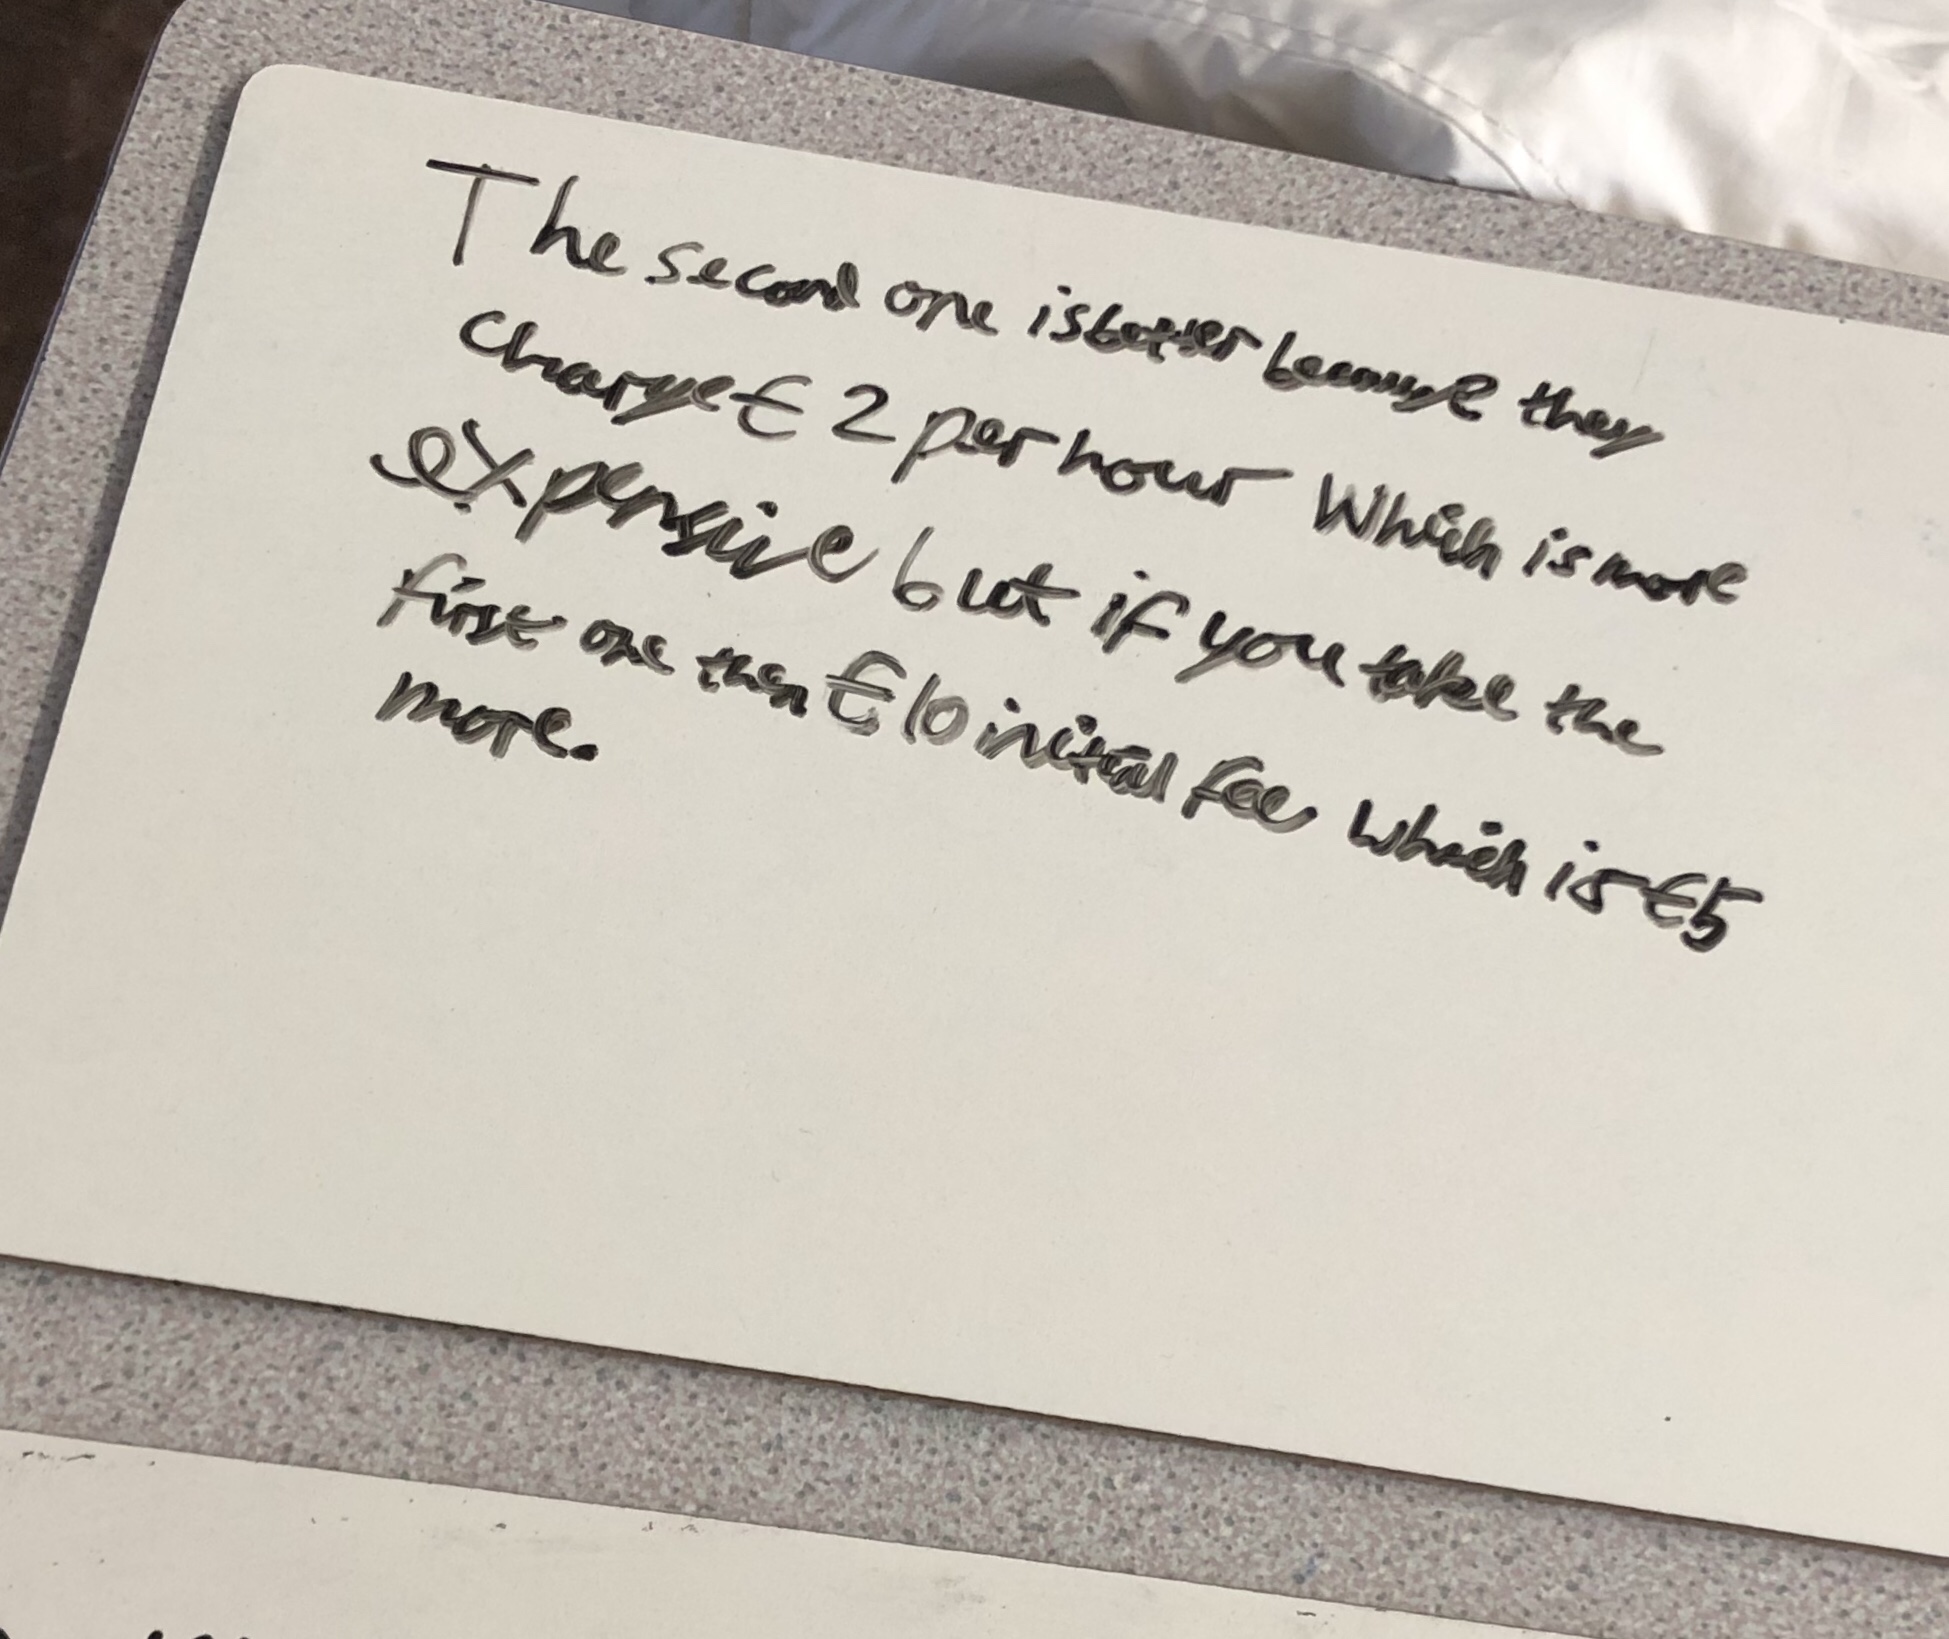 The second one is better because they
charge € 2 per hour which is more
expensive but if you take the
first one then € 10 initial fee which is €5
more.